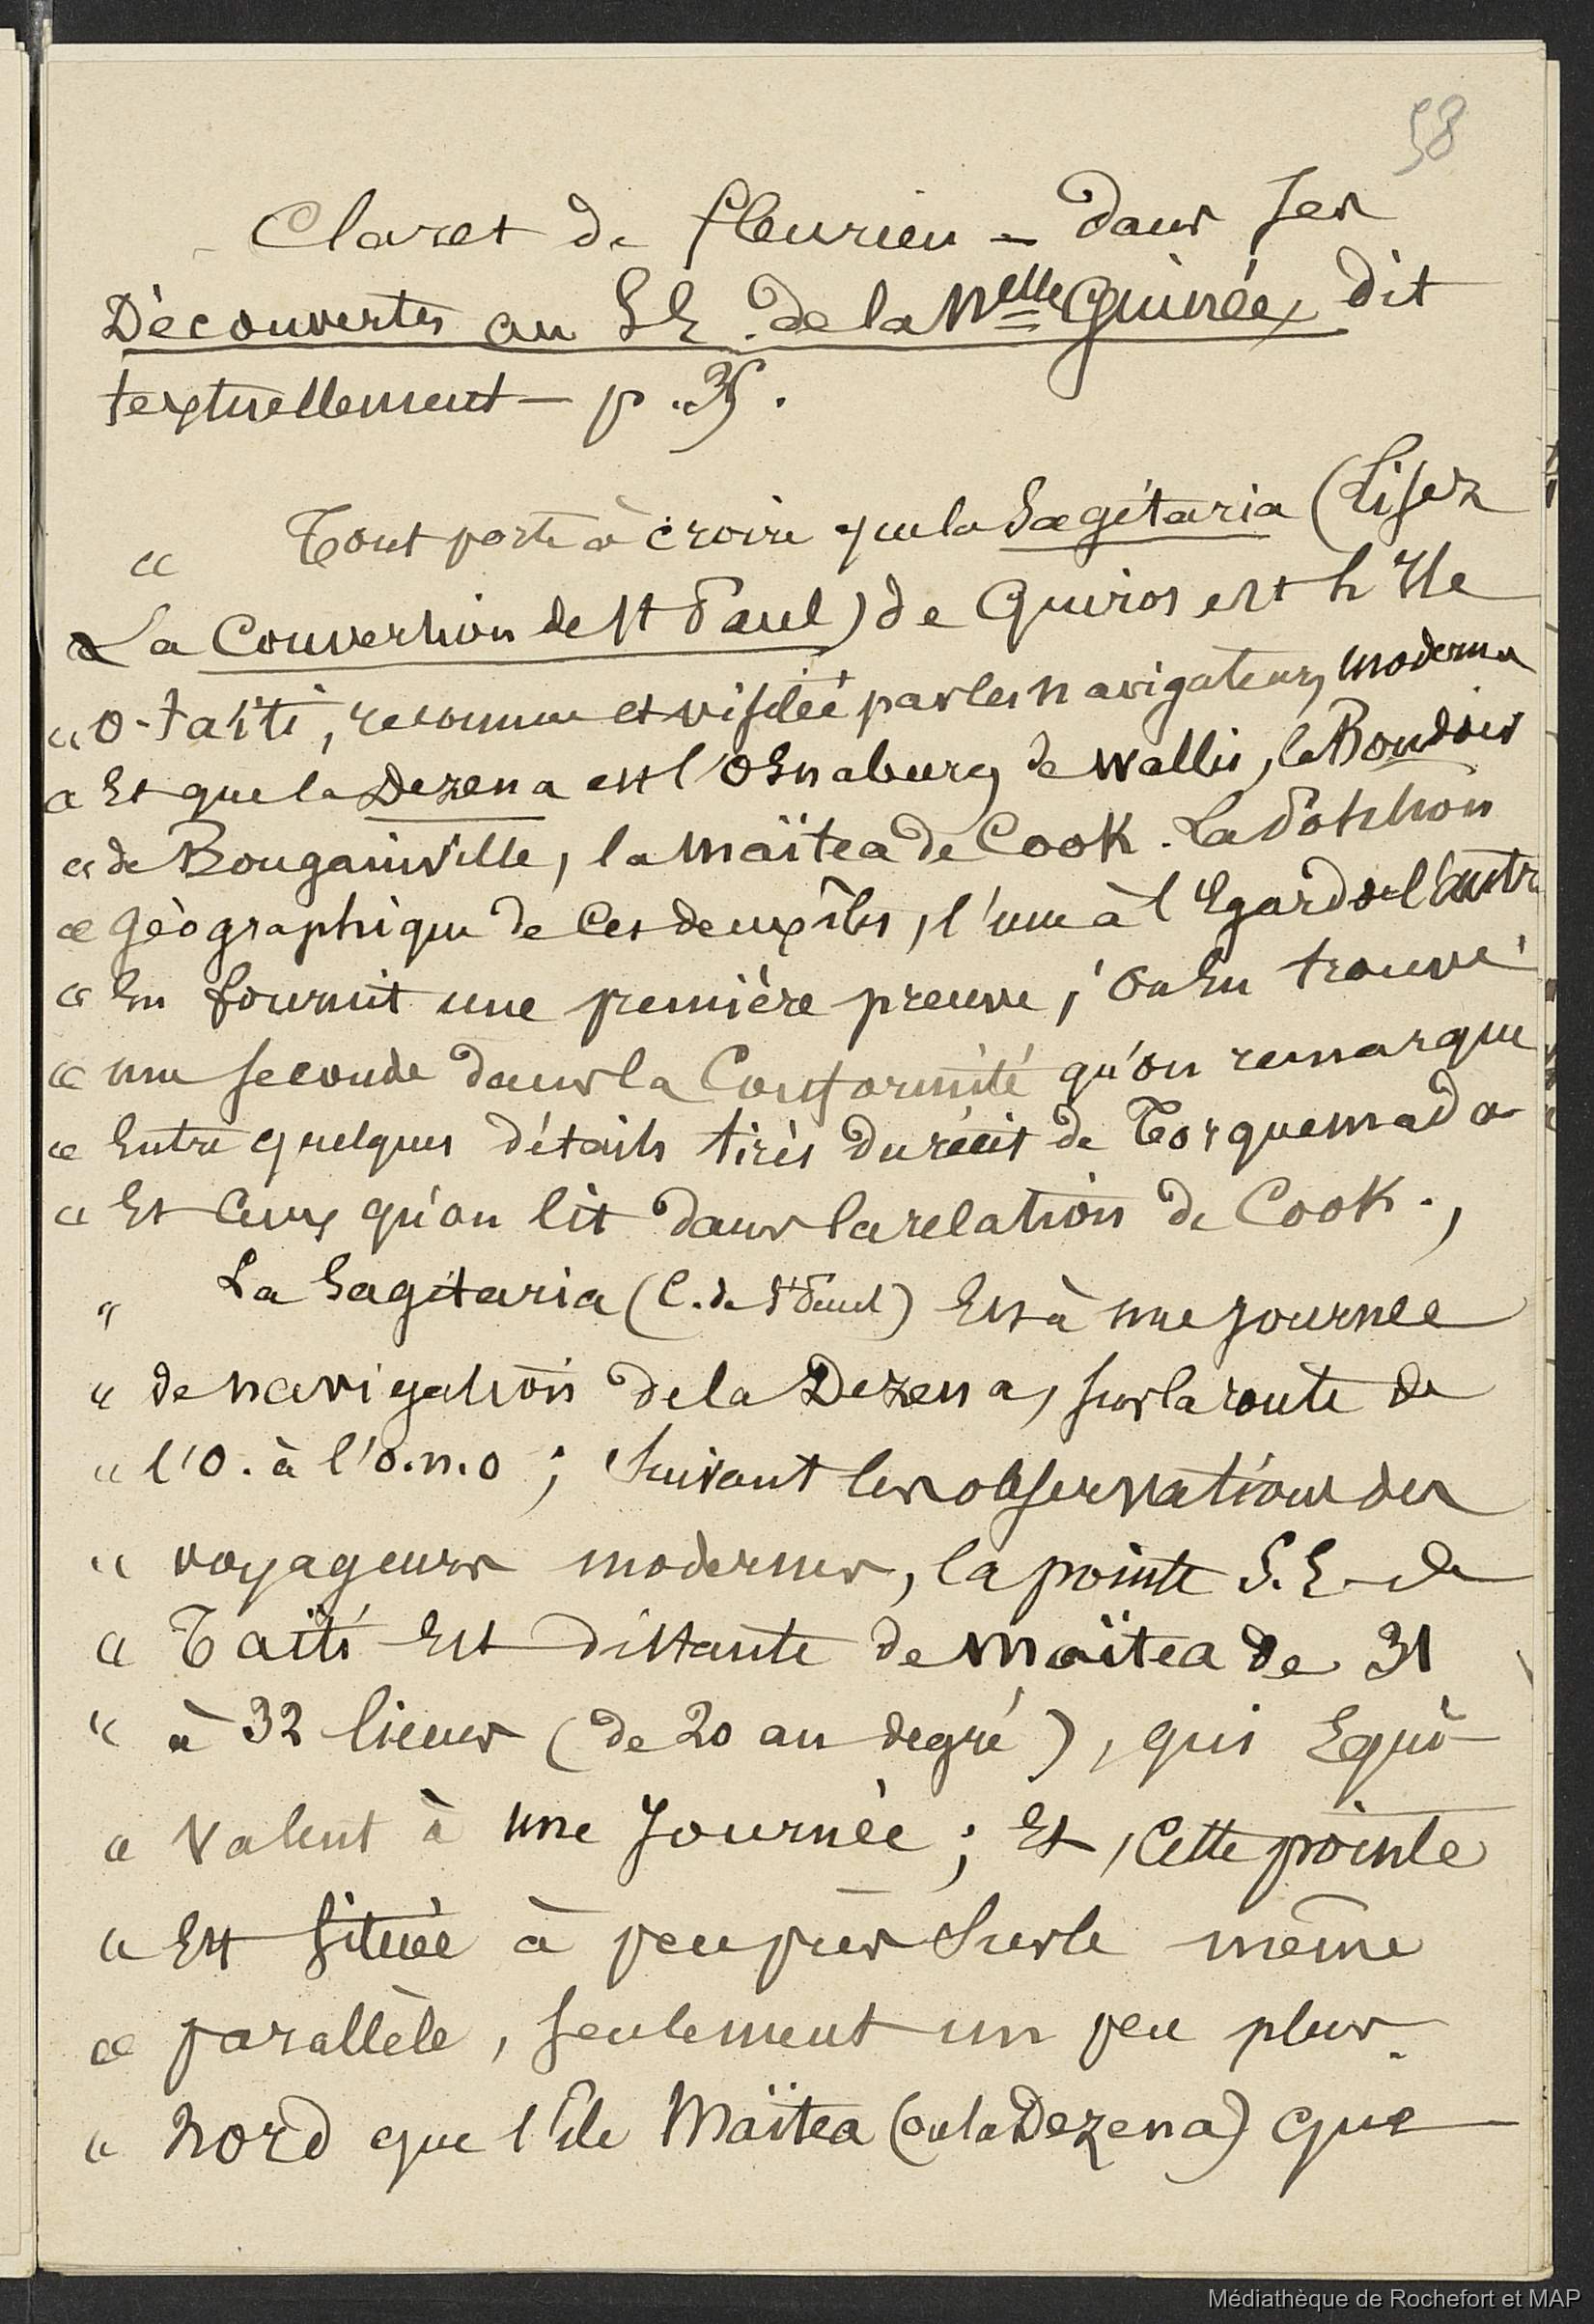 58
Claret de fleurieu – dans ses
Découvertes au SE. de la Nelle Guinée, dit
textuellement – p. 35.
" Tout porte à croire que la Sagétaria (Lisez
" La Conversion de St Paul) de Quiros est l'Ile
" O-taïti, reconnue et visitée par les navigateurs modernes
" Et que la Dezena est l'Osnaburg de Wallis, le Boudoir
" de Bougainville, la Maïtea de Cook. La Position
" géographique de ces deux îles, l'une à l'Egard de l'autre
" En fournit une première preuve ; on En trouve
" une seconde dans la Conformité qu'on remarque
" Entre quelques détails tirés du récit de Torquemada
" Et Ceux qu'on lit dans la relation de Cook.,
" La Sagitaria (C. de St Paul) Est à une journée
" de navigation de la Dezena, sur la route de
" l'O. à l'O.n.O ; Suivant les observations des
" voyageurs modernes, la pointe S.E de
" Taïti Est distante de Maïtea de 31
" à 32 lieues (de 20 au degré), qui Equi-
" valent à une Journée ; Et, Cette pointe
" Est située à peu près Sur le même
" parallèle, seulement un peu plus
" Nord que l'île Maïtea (ou la Dezena) que
Médiathèque de Rochefort et MAP